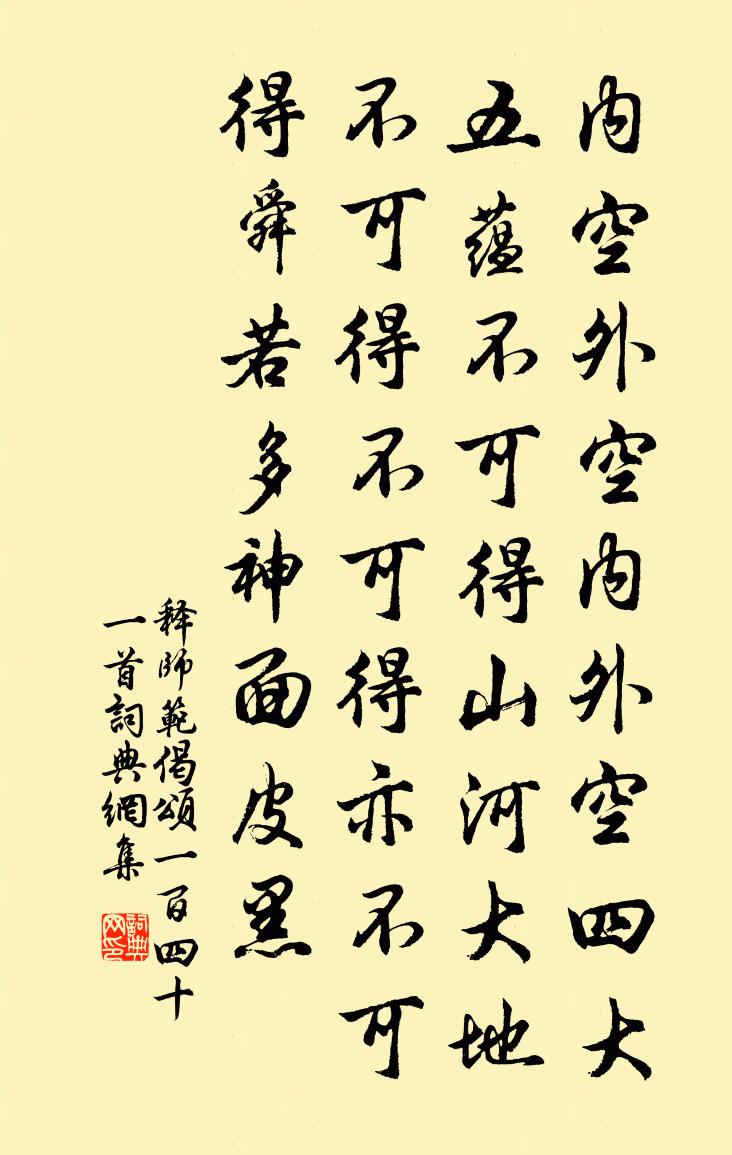 内空外空内外空四大
五蕴不可得山河大地
不可得不可得亦不可
得舜若多神面皮黑
释師範偈頌一百四十
一首詞典網集
詞典网印